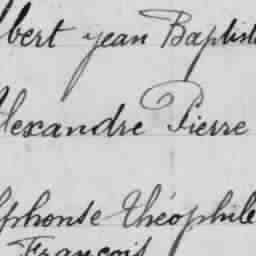 lbert jean Baptist
lexandre Pierre
lphonse théophile
François